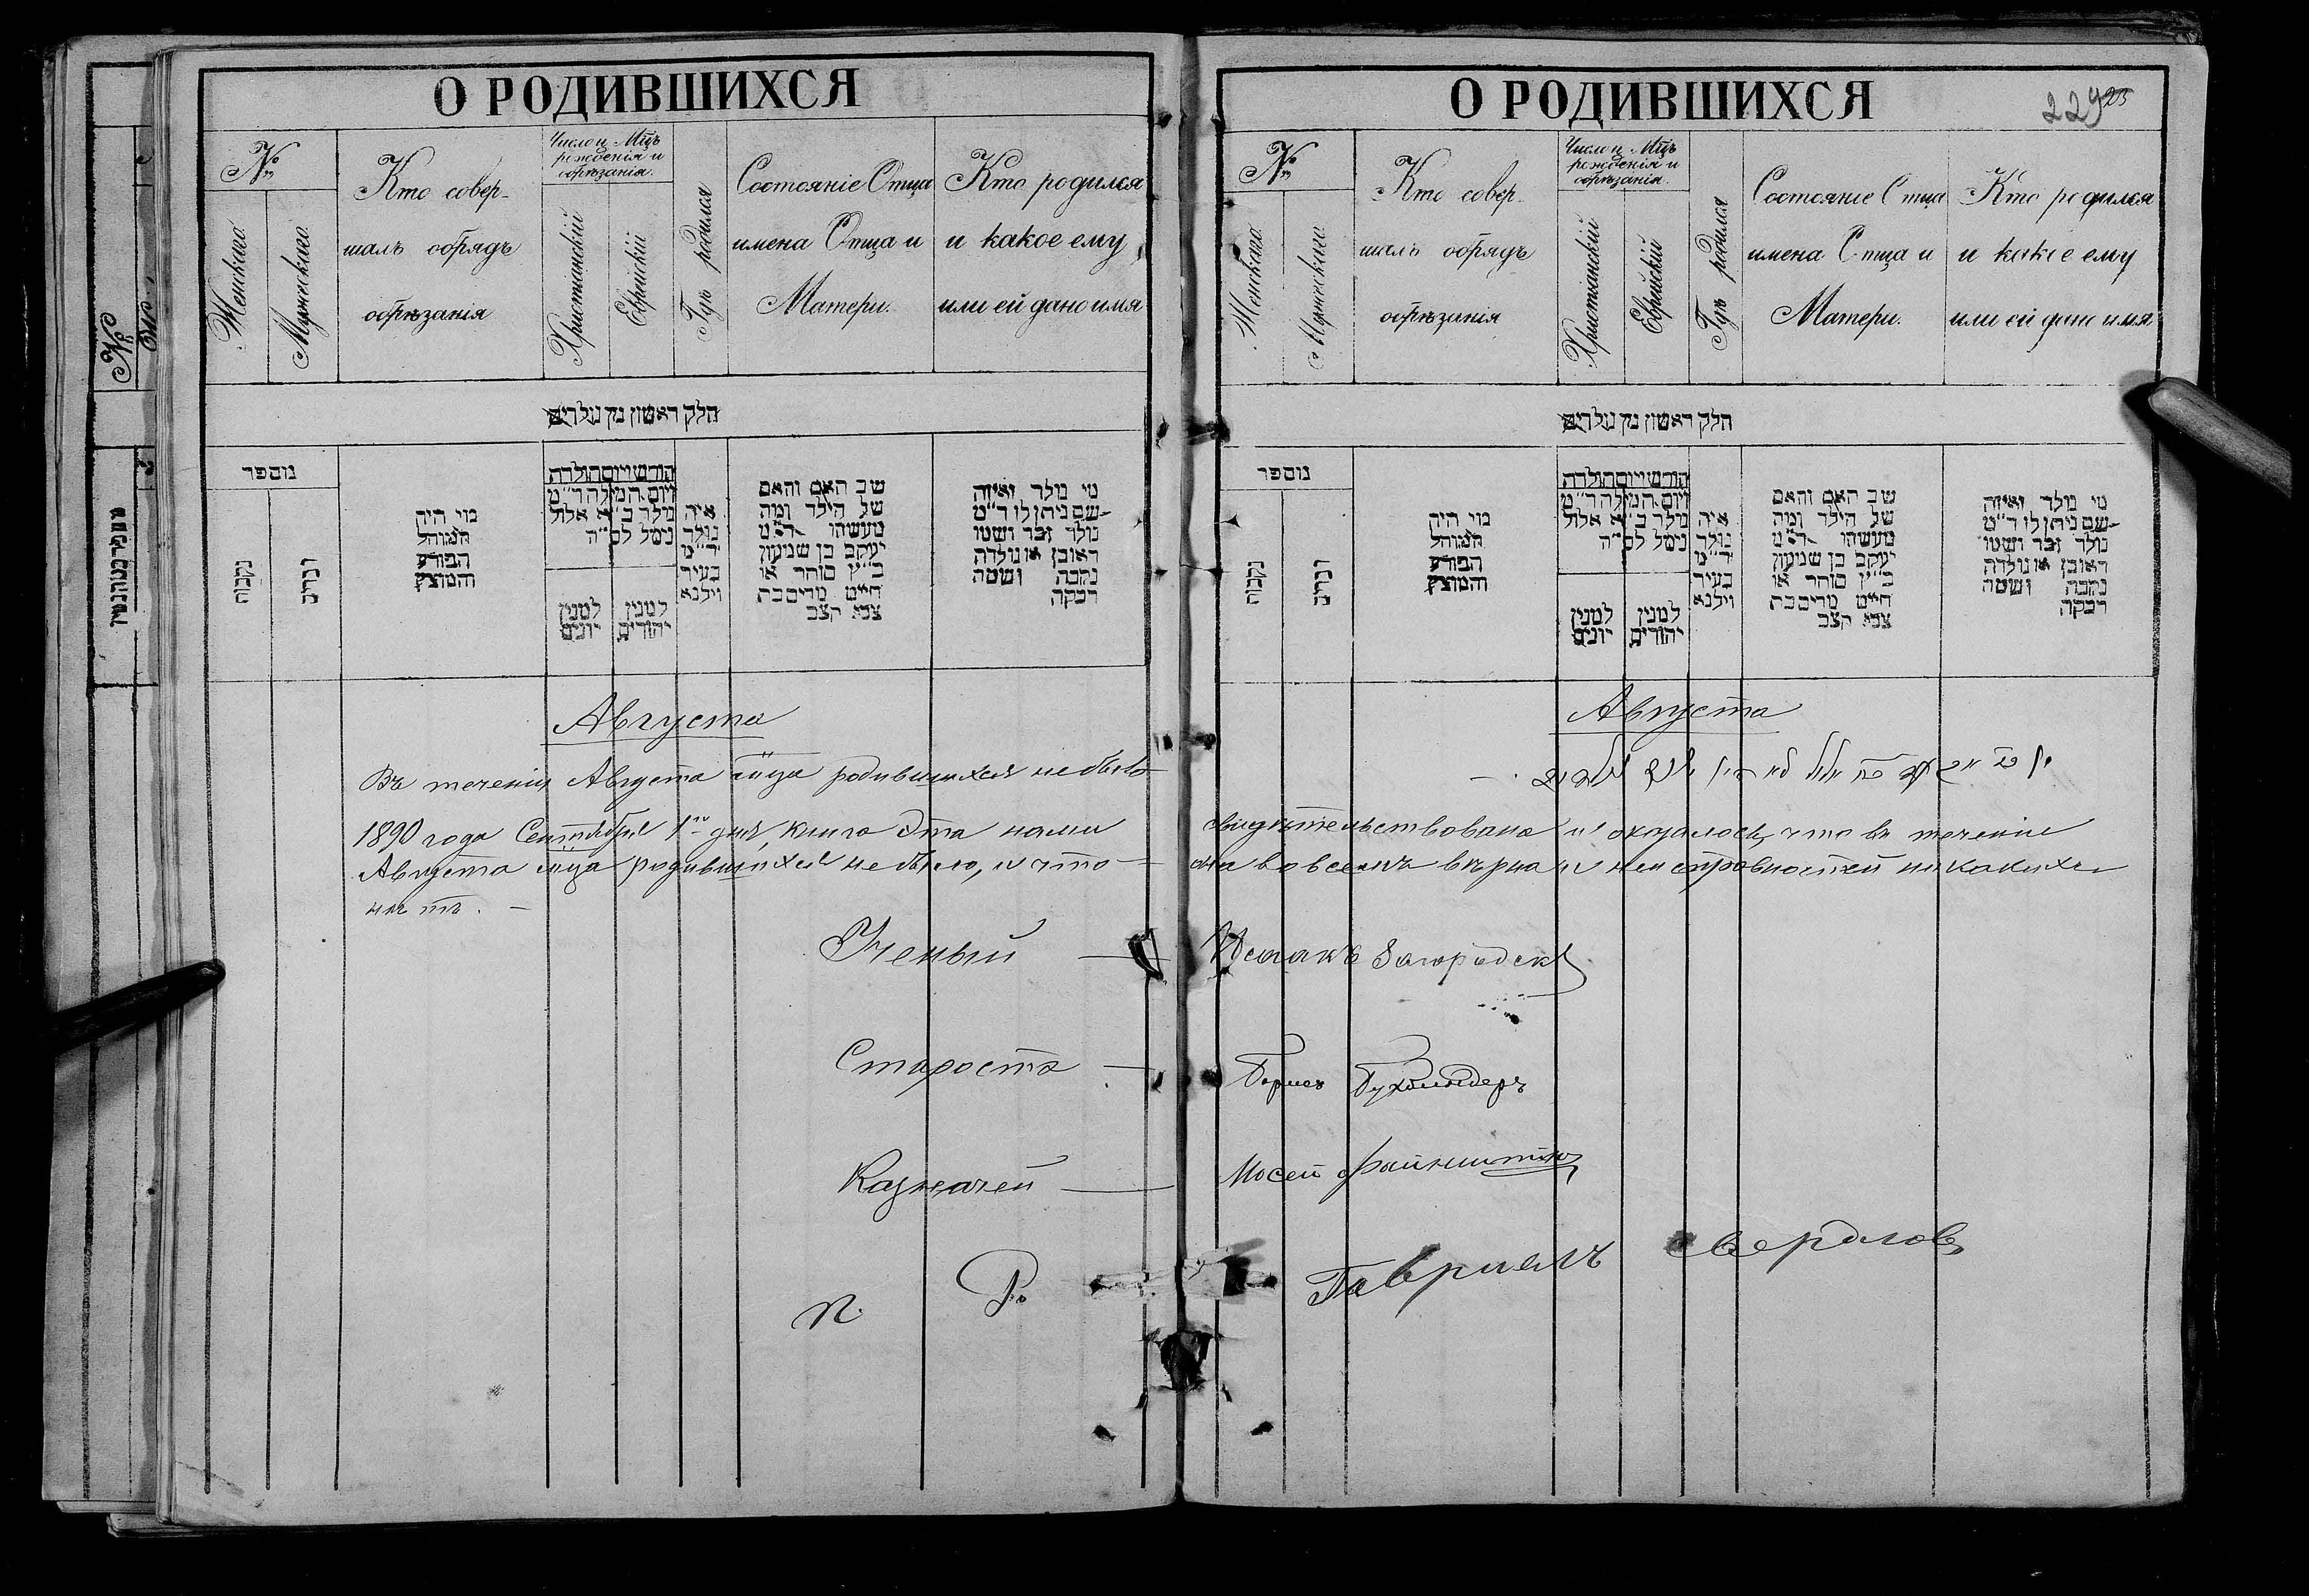 О РОДИВШИХСЯ
№
Женскаго
Мужескаго
Кто совер-
шалъ обрядъ
обрѣзанія
Число и Мцъ
рожденія и
обрѣзанія.
Христіанскій
Еврейскій
Гдѣ родился
Состояніе Отца
имена Отца и
Матери.
Кто родился
и какое ему
или ей дано имя
חלק ראשון מן נולדים
מספר
נקבות
זכרים
מי היה
המוהל
הפורע
והמוצץ
חודש ויום הולדת
ויום המילה ד״מ
נולד ב״א אלול
נימל לס״ה
למנין
יונים
למנין
יהודים
איה
נולד
ד״מ
בעיר
וילנא
שם האב והאם
של הילד ומה
מעשהו ד״מ
יעקב בן שמעון
כ״ץ סוחר או
חייט מרים בת
צבי קצב
מי נולד ואיזה
שם ניתן לו ד״מ
נולד זכר ושמו
ראובן או נולדה
נקבה ושמה
רבקה
Августа
Въ теченіи Августа мца родившихся не было
1890 года Сентября 1го дня, книга эта нами
Августа мца родившихся не было, и что
нѣтъ. —
Ученый —
Староста —
Казначей —
П. Р.
О РОДИВШИХСЯ
229
23
№
Женскаго
Мужескаго
Кто совер-
шалъ обрядъ
обрѣзанія
Число и Мцъ
рожденія и
обрѣзанія.
Христіанскій
Еврейскій
Гдѣ родился
Состояніе Отца
имена Отца и
Матери.
Кто родился
и какое ему
или ей дано имя
חלק ראשון מן נולדים
מספר
נקבות
זכרים
מי היה
המוהל
הפורע
והמוצץ
חודש ויום הולדת
ויום המילה ד״מ
נולד ב״א אלול
נימל לס״ה
למנין
יונים
למנין
יהודים
איה
נולד
ד״מ
בעיר
וילנא
שם האב והאם
של הילד ומה
מעשהו ד״מ
יעקב בן שמעון
כ״ץ סוחר או
חייט מרים בת
צבי קצב
מי נולד ואיזה
שם ניתן לו ד״מ
נולד זכר ושמו
ראובן או נולדה
נקבה ושמה
רבקה
Августа
свидѣтельствована и оказалось, что въ теченіи
она во всемъ вѣрна и неисправностей никакихъ
Исаакъ Загородск
Борис Бухбиндеръ
Мосей Файнштейн
Гавриелъ Свердловъ